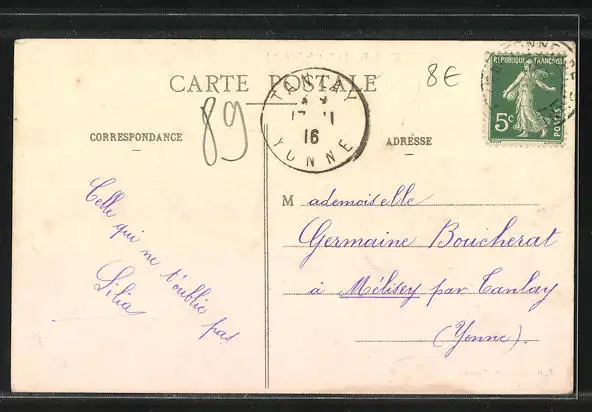 CARTE POSTALE
8€
RÉPUBLIQUE FRANÇAISE
5c
POSTES
TANLAY
17 - 1
16
YONNE
89
CORRESPONDANCE
ADRESSE
Celle qui ne t'oublie pas
Lilia
Mademoiselle
Germaine Boucherat
à Mélisey par Tanlay
(Yonne).